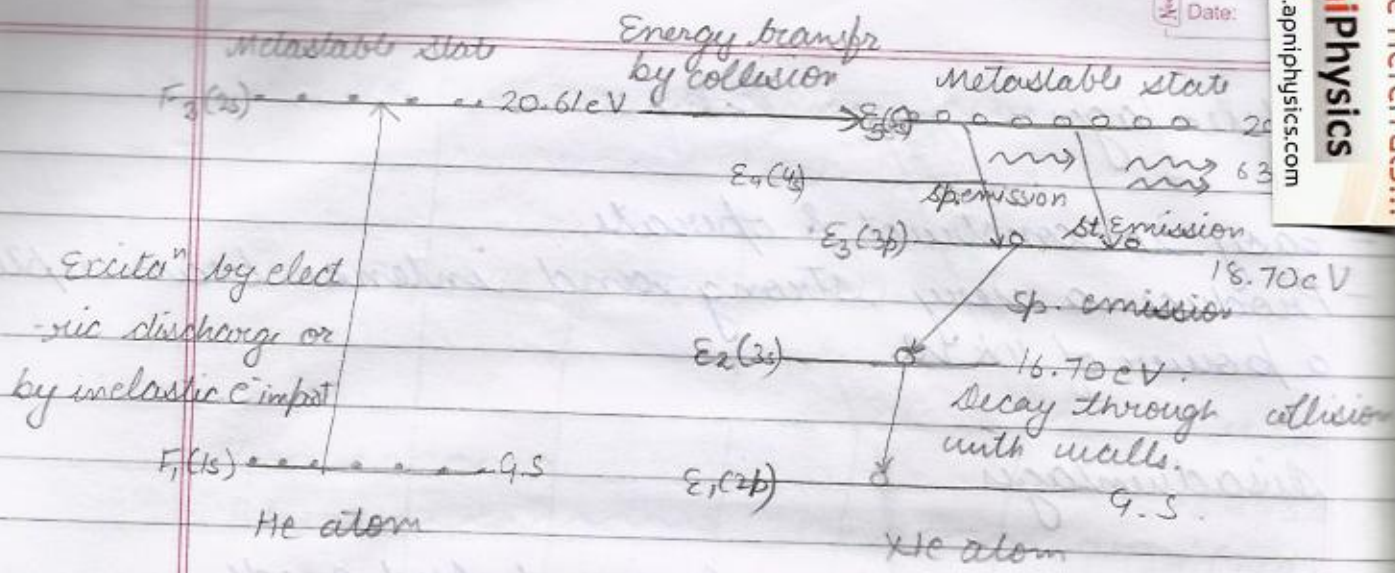 Date:
iPhysics
.apniphysics.com
Metastable State
Energy transfr
by collision
Metastable state
F3(2s) 20.61eV
E5(5s) 20
63
E4(4s)
sp.emission
E3(3p)
st. Emission
18.70eV
Excitaⁿ by elect
-ric discharge or
by inelastic e⁻ impat
sp. emission
E2(3s) 16.70 eV.
Decay through collision
with walls.
F1(1s) G.S
E1(2p) G.S.
He atom
Ne atom